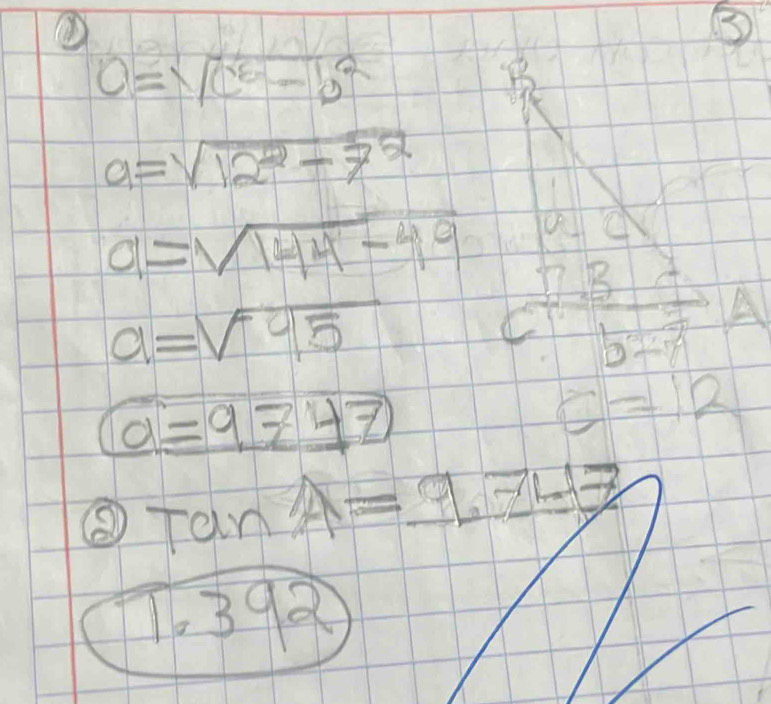 ①
a=√c²-b²
a=√12²-7²
a=√144-49
a=√95
a=9.747
② Tan A=9.747
1.392
③
B
a c
C A
b=7
c=12